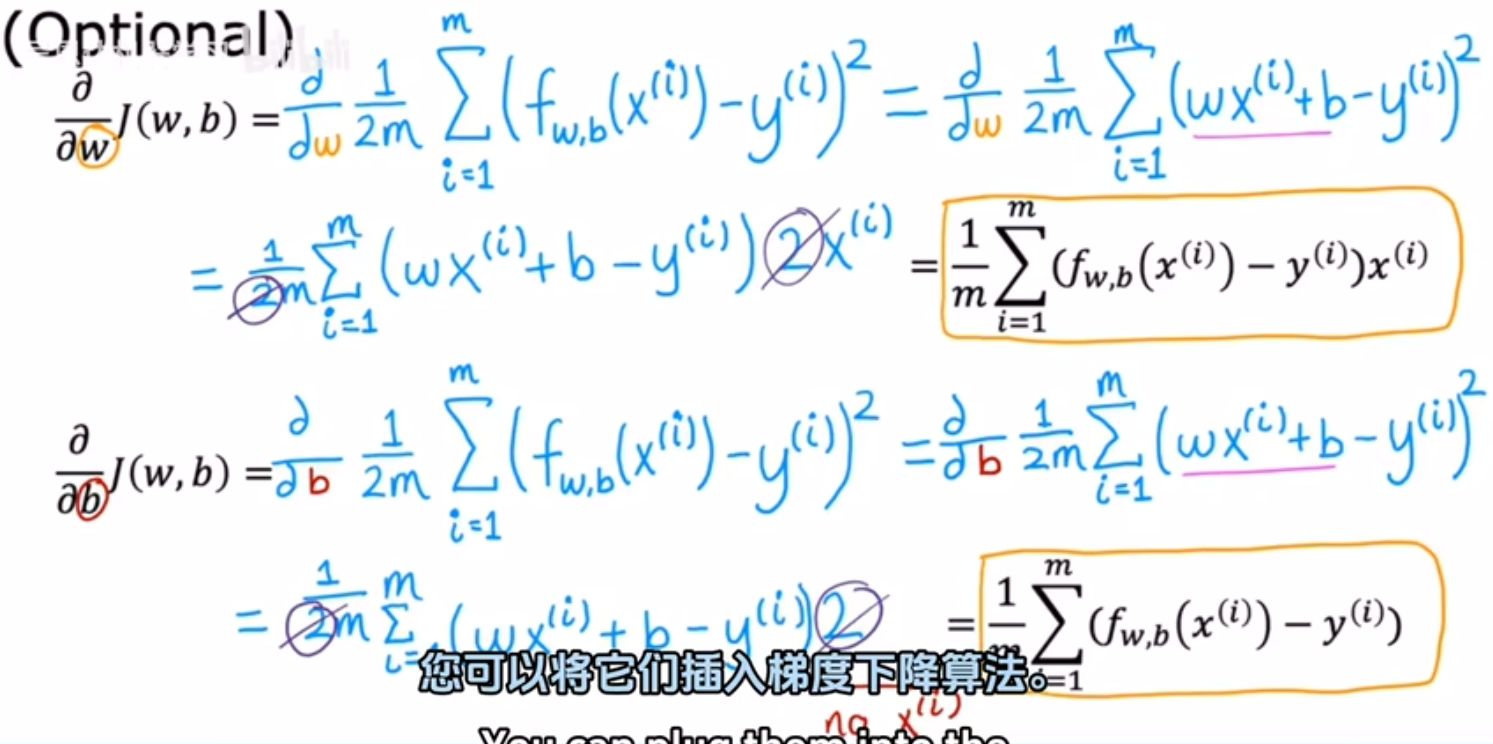 (Optional)
∂/∂w J(w, b) = ∂/∂w 1/2m ∑_{i=1}^{m} (f_{w,b}(x^{(i)}) − y^{(i)})² = ∂/∂w 1/2m ∑_{i=1}^{m} (wx^{(i)} + b − y^{(i)})²
= 1/2m ∑_{i=1}^{m} (wx^{(i)} + b − y^{(i)}) 2x^{(i)} = 1/m ∑_{i=1}^{m} (f_{w,b}(x^{(i)}) − y^{(i)})x^{(i)}
∂/∂b J(w, b) = ∂/∂b 1/2m ∑_{i=1}^{m} (f_{w,b}(x^{(i)}) − y^{(i)})² = ∂/∂b 1/2m ∑_{i=1}^{m} (wx^{(i)} + b − y^{(i)})²
= 1/2m ∑_{i=1}^{m} (wx^{(i)} + b − y^{(i)}) 2 = 1/m ∑_{i=1}^{m} (f_{w,b}(x^{(i)}) − y^{(i)})
您可以将它们插入梯度下降算法。
no x^{(i)}
You can plug them into the